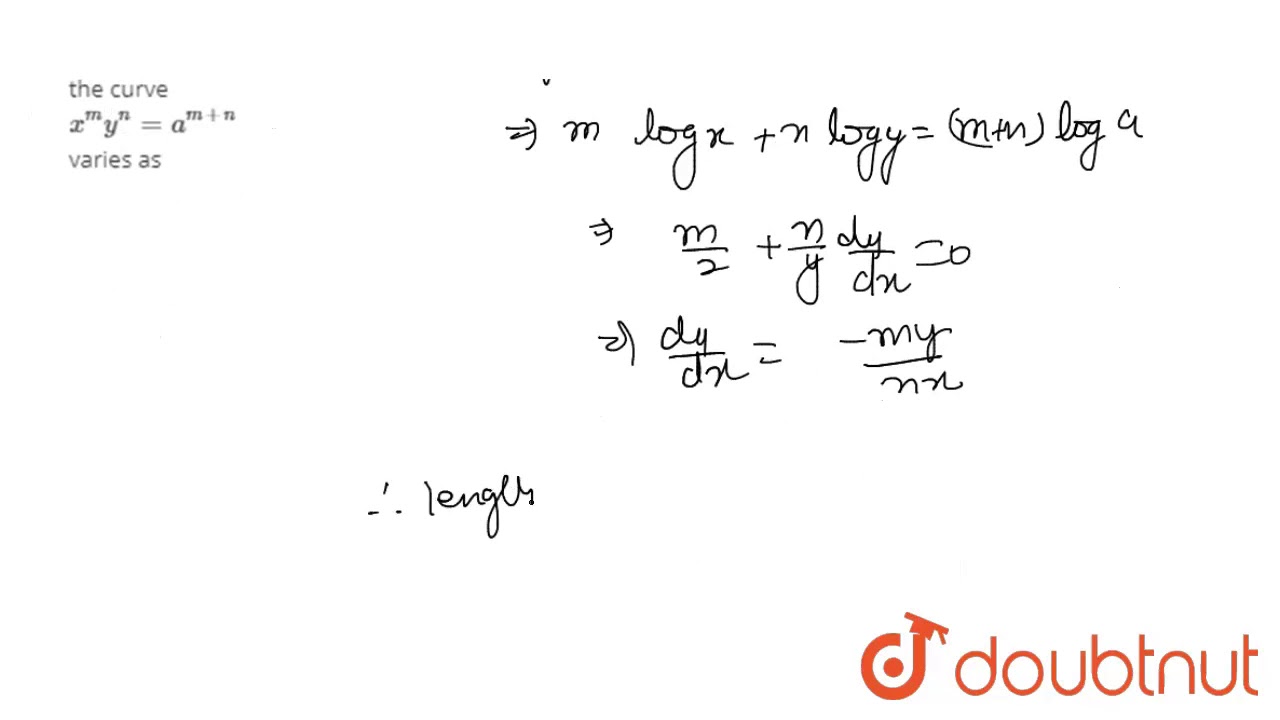 the curve
x^m y^n = a^{m+n}
varies as
⇒ m log x + n log y = (m+n) log a
⇒ m/2 + n/y dy/dx = 0
⇒ dy/dx = -my/nx
∴ length
doubtnut